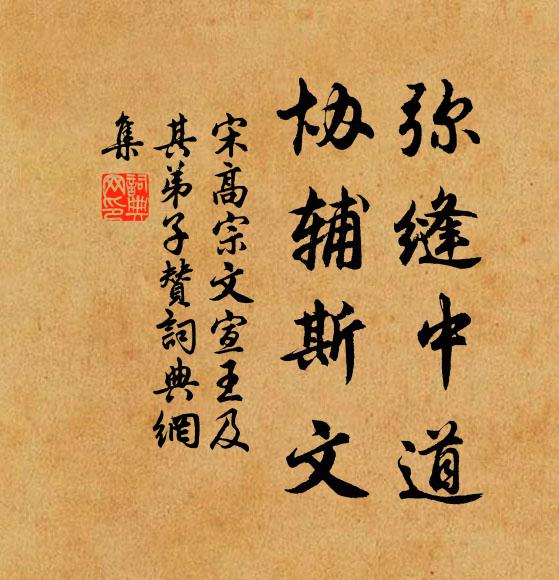 弥缝中道
协辅斯文
宋高宗文宣王及
其弟子賛詞典網
集
詞典
网印